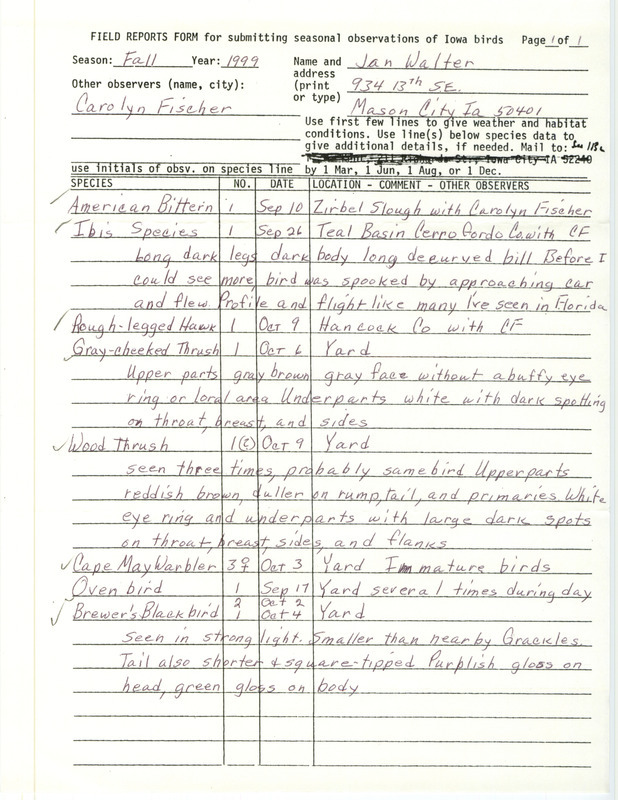 FIELD REPORTS FORM for submitting seasonal observations of Iowa birds Page 1 of 1
Season: Fall Year: 1999 Name and address (print or type) Jan Walter
934 13th SE.
Mason City Ia 50401
Other observers (name, city):
Carolyn Fischer
Use first few lines to give weather and habitat
conditions. Use line(s) below species data to
give additional details, if needed. Mail to:
Iowa City IA 52240
use initials of obsv. on species line by 1 Mar, 1 Jun, 1 Aug, or 1 Dec.
SPECIES NO. DATE LOCATION - COMMENT - OTHER OBSERVERS
American Bittern 1 Sep 10 Zirbel Slough with Carolyn Fischer
Ibis Species 1 Sep 26 Teal Basin Cerro Gordo Co. with CF
Long dark legs dark body long decurved bill Before I
could see more, bird was spooked by approaching car
and flew. Profile and flight like many I've seen in Florida
Rough-legged Hawk 1 Oct 9 Hancock Co with CF
Gray-cheeked Thrush 1 Oct 6 Yard
Upper parts gray brown gray face without a buffy eye
ring or loral area Underparts white with dark spotting
on throat, breast, and sides
Wood Thrush 1 Oct 9 Yard
seen three times, probably same bird Upperparts
reddish brown, duller on rump, tail, and primaries White
eye ring and underparts with large dark spots
on throat, breast, sides, and flanks
Cape May Warbler 3♀ Oct 3 Yard Immature birds
Oven bird 1 Sep 17 Yard several times during day
2 Oct 2
Brewer's Blackbird 1 Oct 4 Yard
Seen in strong light. Smaller than nearby Grackles.
Tail also shorter & square-tipped Purplish gloss on
head, green gloss on body